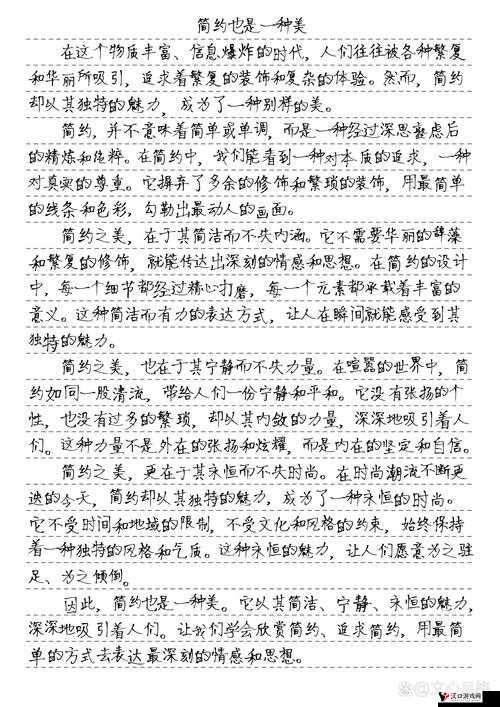 简约也是一种美
在这个物质丰富、信息爆炸的时代，人们往往被各种繁复
和华丽所吸引，追求着繁复的装饰和复杂的体验。然而，简约
却以其独特的魅力，成为了一种别样的美。
简约，并不意味着简单或单调，而是一种经过深思熟虑后
的精炼和纯粹。在简约中，我们能看到一种对本质的追求，一种
对真实的尊重。它摒弃了多余的修饰和繁琐的装饰，用最简单
的线条和色彩，勾勒出最动人的画面。
简约之美，在于其简洁而不失内涵。它不需要华丽的辞藻
和繁复的修饰，就能传达出深刻的情感和思想。在简约的设计
中，每一个细节都经过精心打磨，每一个元素都承载着丰富的
意义。这种简洁而有力的表达方式，让人在瞬间就能感受到其
独特的魅力。
简约之美，也在于其宁静而不失力量。在喧嚣的世界中，简
约如同一股清流，带给人们一份宁静和平和。它没有张扬的个
性，也没有过多的繁琐，却以其内敛的力量，深深地吸引着人
们。这种力量不是外在的张扬和炫耀，而是内在的坚定和自信。
简约之美，更在于其永恒而不失时尚。在时尚潮流不断更
迭的今天，简约却以其独特的魅力，成为了一种永恒的时尚。
它不受时间和地域的限制，不受文化和风格的约束，始终保持
着一种独特的风格和气质。这种永恒的魅力，让人们愿意为之驻
足、为之倾倒。
因此，简约也是一种美。它以其简洁、宁静、永恒的魅力，
深深地吸引着人们。让我们学会欣赏简约、追求简约，用最简
单的方式去表达最深刻的情感和思想。
汉口游戏网